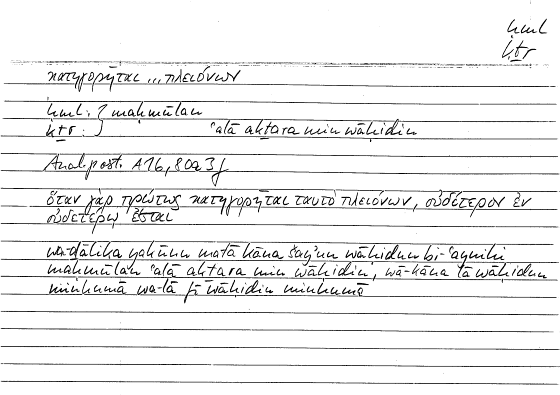 ḥml
kṯr
κατηγορῆται ... πλειόνων
ḥml : } maḥmūlan
kṯr : } ʿalā akṯara min wāḥidin
Anal. post. A 16, 80a3f
ὅταν γὰρ πρώτως κατηγορῆται ταὐτὸ πλειόνων, οὐδέτερον ἐν
οὐδετέρῳ ἔσται
wa-ḏālika yakūnu matā kāna šayʾun wāḥidun bi-ʿaynihi
maḥmūlan ʿalā akṯara min wāḥidin, wa-kāna lā wāḥidun
minhumā wa-lā fī wāḥidin minhumā